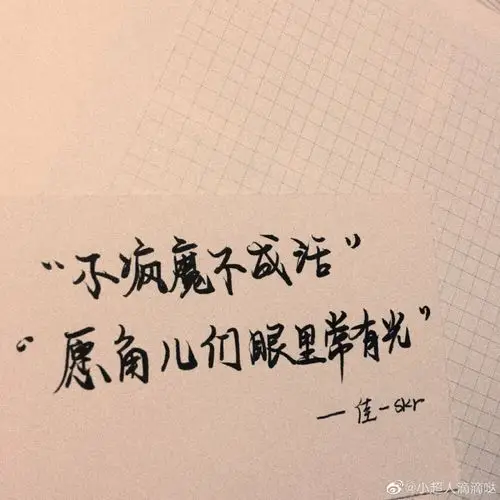 “不疯魔不成活”
“愿角儿们眼里常有光”
—佳-skr
@小超人滴滴哒